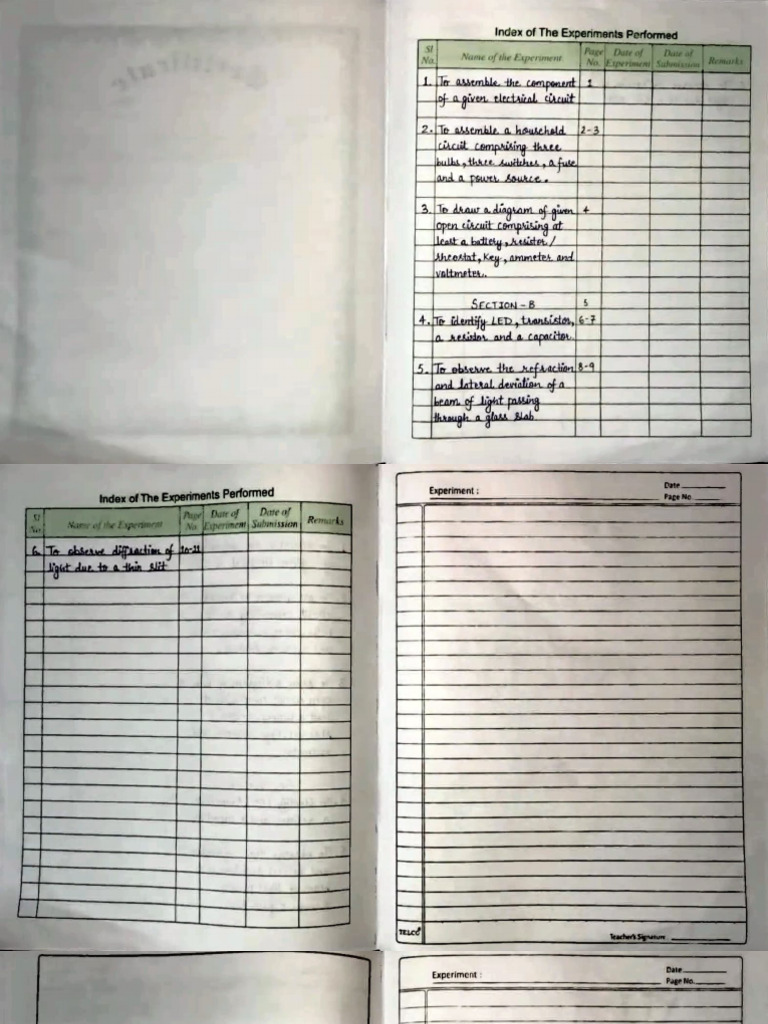 Certificate
Index of The Experiments Performed
Sl No. Name of the Experiment Page No. Date of Experiment Date of Submission Remarks
1. To assemble the component 1
of a given electrical circuit
2. To assemble a household 2-3
circuit comprising three
bulbs, three switches, a fuse
and a power source.
3. To draw a diagram of given 4
open circuit comprising at
least a battery, resistor /
rheostat, Key, ammeter and
voltmeter.
SECTION-B 5
4. To identify LED, transistor, 6-7
a resistor and a capacitor.
5. To observe the refraction 8-9
and lateral deviation of a
beam of light passing
through a glass slab
Index of The Experiments Performed
Sl No. Name of the Experiment Page No. Date of Experiment Date of Submission Remarks
6. To observe diffraction of 10-11
light due to a thin slit
Experiment :
Date
Page No.
TELCO
Teacher's Signature
Experiment :
Date
Page No.